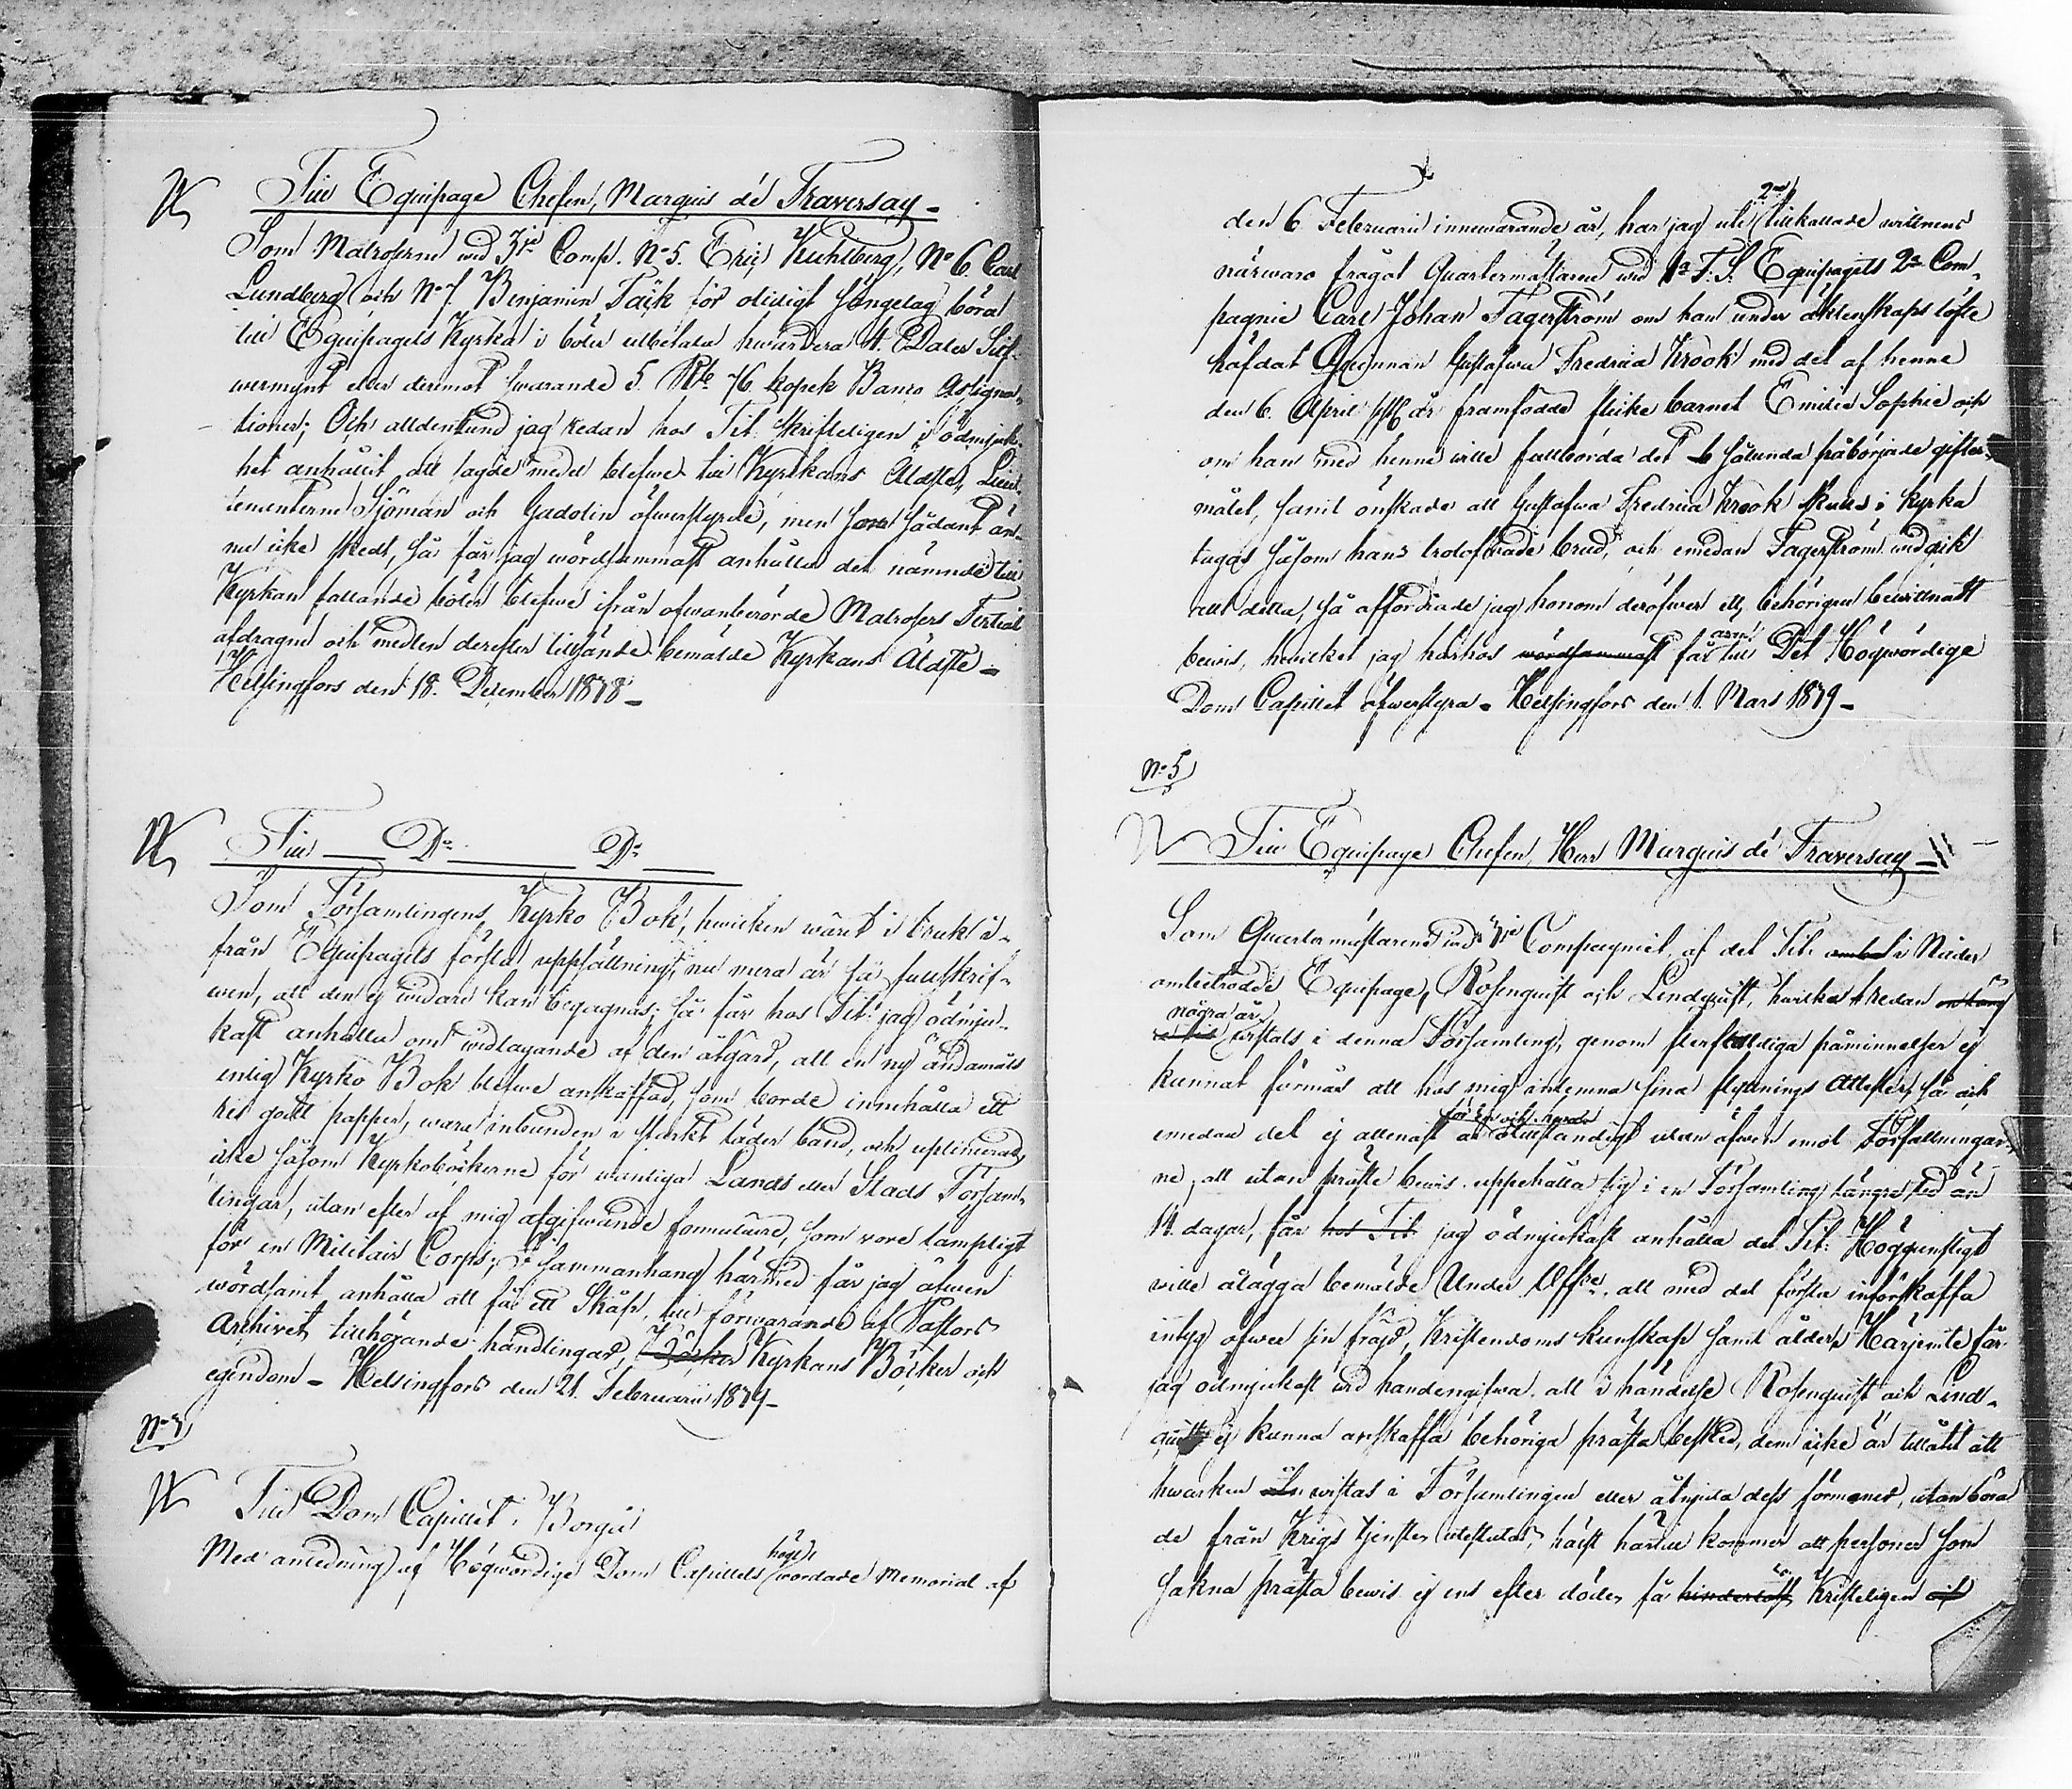 Till Equipage Chefen, Marquis dé Traversay -
Som Matroserne wid 3je Comp. No 5. Eric Kuhlberg, No 6. Carl
Lundberg och No 7. Benjamin Täck för olidigt sängelag böra
till Equipagets Kyrka i böter utbetala hwardera 4. Daler Silf-
wermynt eller deremot swarande 5. Rbl 76 kopek Banco Assigna-
tioner; Och alldenstund jag redan hos Tit. skrifteligen i ödmjuk-
het anhållit, att sagde medel blefwe till Kyrkans Äldste, Lieut-
tenenterne Sjöman och Gadolin öfwerstyrde, men som sådant än-
nu icke skedt, så får jag wördsammast anhålla det nämnde till
Kyrkan fallande böter blefwe ifrån ofwanberörde Matrosers Tertial
afdragne och medlen derefter tillsände bemälde Kyrkans Äldste -
Helsingfors den 18. December 1838 -
Till Do Do
Som Församlingens Kyrko Bok, hwilken warit i bruk i-
från Equipagets första uppsättning, nu mera är så fullskrif-
wen, att den ej widare kan begagnas; så får hos Tit. jag ödmju-
kast anhålla om widtagande af den åtgärd, att en ny ändamåls
enlig Kyrko Bok blefwe anskaffad, som borde innehålla ett
ris godt papper, wara inbunden i starkt läder band, och uplinierad
icke såsom Kyrkoböckerne för wanliga Lands eller Stads Försam-
lingar, utan efter af mig afgifwande formulaire, som vore lämpligt
för en Militair Corps; I sammanhang härmed får jag äfwen
wördsamt anhålla att få ett Skåp, till förwarande af Pastors
Archivet tillhörande handlingar, Böcker Kyrkans Böcker och
egendom - Helsingfors den 21. Februarii 1839 -
No 3
Till Dom Capitlet i Borgå
högt
Med anledning af Högwördige Dom Capitlets wördade Memorial af
den 6 Februarii innewarande år, har jag uti 2ne tillkallade wittnens
närwaro frågat Quartermästaren wid 1a F. S. Equipagets 2a Com-
pagnie Carl Johan Fagerström om han under äktenskaps löfte
häfdat Qwinnan Gustafwa Fredrica Krook med det af henne
den 6. April sistl. år framfödde flicke barnet Emilia Sophia och
om han med henne wille fullborda det så sålunda påbörjade gifter-
målet, samt önskade att Gustafwa Fredrica Krook skulle i kyrka
tagas såsom hans trolofwade brud, och emedan Fagerström widgick
allt detta, så affordrade jag honom deröfwer ett behörigen bewittnadt
bewis, hwilket jag härhos wördsammast får till Det Högwördige
Dom Capitlet öfwerstyra - Helsingfors den 1. Mars 1839 -
No 5
Till Equipage Chefen, Herr Marquis dé Traversay -
Som Quartermästarene wid Compagniet af det Tit. i Nåder
ombetrodde Equipage, Rosenquist och Lindquist, hwilka redan en lång
några år
wistats i denna Församling, genom flerfalldiga påminnelser ej
kunnat förmås att hos mig inlemna sina flyttnings Attester, så och
emedan det ej allenast är otillständigt utan äfwen emot Författningar-
ne, att utan präste bewis uppehålla sig i en Församling längre tid än
14 dagar, får hos Tit. jag ödmjukast anhålla det Tit. Höggunstigt
wille ålägga bemälde Under Offre, att med det första införskaffa
intyg öfwer sin frägd, Kristendoms kunskap samt ålder; Härjemte får
jag ödmjukast wid handen gifwa, att i händelse Rosenquist och Lind-
quist ej kunna anskaffa behöriga prästa besked, dem icke är tillåtit att
hwarken wistas i Församlingen eller åtnjuta dess förmoner, utan böra
de från Krigs tjensten uteslutas, hälst härtill kommer att personer som
sakna prästa bewis ej ens efter döden få hinderlöst Kristeligen